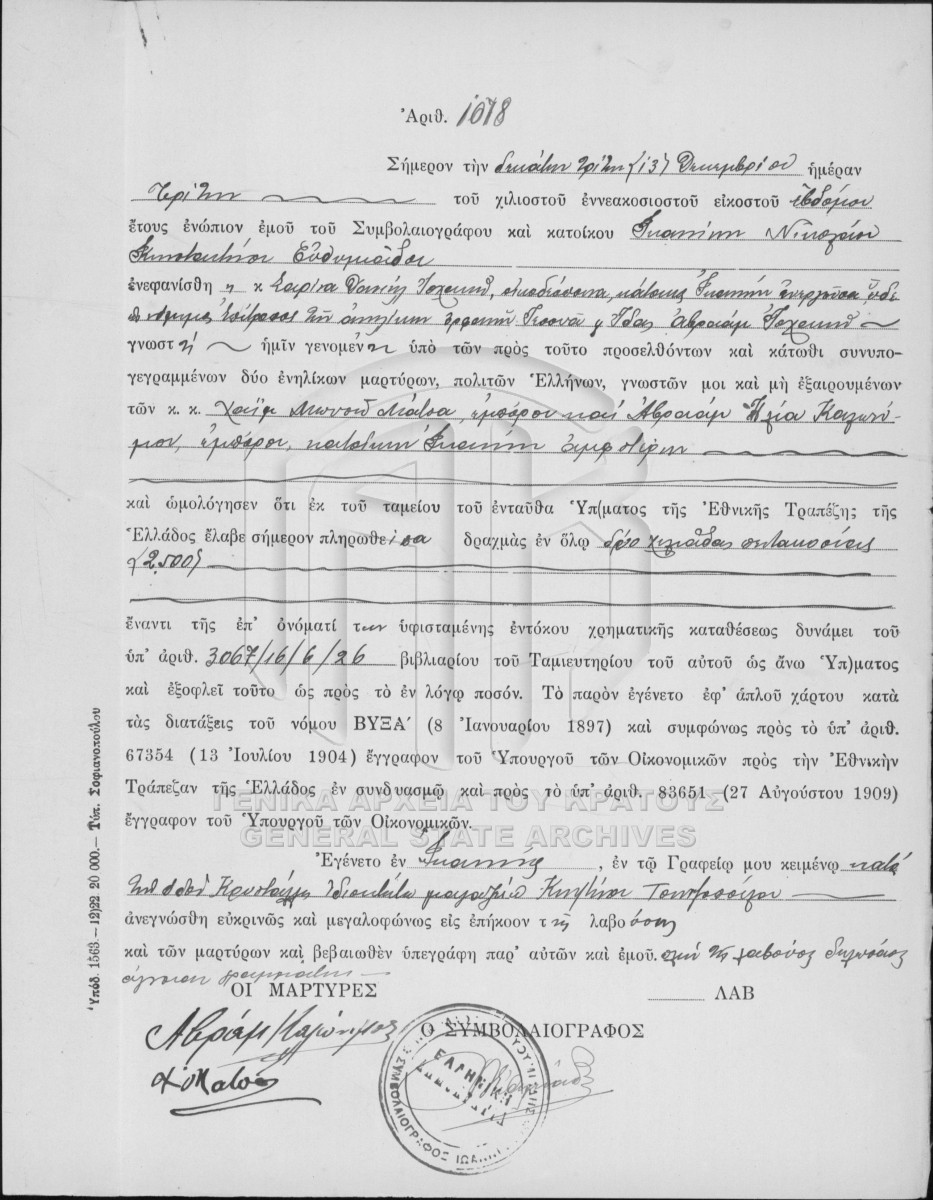 Ἀριθ. 1078
Σήμερον τὴν δεκάτην τρίτην (13) Δεκεμβρίου ἡμέραν
Τρίτην τοῦ χιλιοστοῦ ἐννεακοσιοστοῦ εἰκοστοῦ ἑβδόμου
ἔτους ἐνώπιον ἐμοῦ τοῦ Συμβολαιογράφου καὶ κατοίκου Ἰωαννίνων Νικολάου
Κωνσταντίνου Εὐθυμιάδου
ἐνεφανίσθη ἡ κ. Δανιὴλ οἰκοδέσποινα, κάτοικος Ἰωαννίνων ἐνεργοῦσα
ἐπίτροπος τῶν ἀνηλίκων ὀρφανῶν Ἀβραὰμ
γνωστὴ ἡμῖν γενομένη ὑπὸ τῶν πρὸς τοῦτο προσελθόντων καὶ κάτωθι συνυπο-
γεγραμμένων δύο ἐνηλίκων μαρτύρων, πολιτῶν Ἑλλήνων, γνωστῶν μοι καὶ μὴ ἐξαιρουμένων
τῶν κ. κ. Χαῒμ Μάτσα, ἐμπόρου καὶ Ἀβραὰμ Ἠλία Καλωνύ-
μου, ἐμπόρου, κατοίκων Ἰωαννίνων ἀμφοτέρων
καὶ ὡμολόγησεν ὅτι ἐκ τοῦ ταμείου τοῦ ἐνταῦθα Ὑπ(ματος τῆς Ἐθνικῆς Τραπέζης τῆς
Ἑλλάδος ἔλαβε σήμερον πληρωθεῖσα δραχμὰς ἐν ὅλῳ δύο χιλιάδας πεντακοσίας
(2.500)
ἔναντι τῆς ἐπ' ὀνόματί των ὑφισταμένης ἐντόκου χρηματικῆς καταθέσεως δυνάμει τοῦ
ὑπ' ἀριθ. 3067/16/6/26 βιβλιαρίου τοῦ Ταμιευτηρίου τοῦ αὐτοῦ ὡς ἄνω Ὑπ)ματος
καὶ ἐξοφλεῖ τοῦτο ὡς πρὸς τὸ ἐν λόγῳ ποσόν. Τὸ παρὸν ἐγένετο ἐφ' ἁπλοῦ χάρτου κατὰ
τὰς διατάξεις τοῦ νόμου ΒΥΞΑ' (8 Ἰανουαρίου 1897) καὶ συμφώνως πρὸς τὸ ὑπ' ἀριθ.
67354 (13 Ἰουλίου 1904) ἔγγραφον τοῦ Ὑπουργοῦ τῶν Οἰκονομικῶν πρὸς τὴν Ἐθνικὴν
Τράπεζαν τῆς Ἑλλάδος ἐν συνδυασμῷ καὶ πρὸς τὸ ὑπ' ἀριθ. 83651 (27 Αὐγούστου 1909)
ἔγγραφον τοῦ Ὑπουργοῦ τῶν Οἰκονομικῶν.
ΓΕΝΙΚΑ ΑΡΧΕΙΑ ΤΟΥ ΚΡΑΤΟΥΣ
GENERAL STATE ARCHIVES
Ἐγένετο ἐν Ἰωαννίνοις, ἐν τῷ Γραφείῳ μου κειμένῳ κατὰ
τὴν ὁδὸν
ἀνεγνώσθη εὐκρινῶς καὶ μεγαλοφώνως εἰς ἐπήκοον τῆς λαβούσης
καὶ τῶν μαρτύρων καὶ βεβαιωθὲν ὑπεγράφη παρ' αὐτῶν καὶ ἐμοῦ. πλὴν τῆς λαβούσης δηλωσάσης
ἄγνοιαν γραμμάτων
ΟΙ ΜΑΡΤΥΡΕΣ ΛΑΒ
Ο ΣΥΜΒΟΛΑΙΟΓΡΑΦΟΣ
Ἀβραὰμ Καλωνύμος
Χ. Μάτσας
ΕΛΛΗΝΙΚΗ
ΔΗΜΟΚΡΑΤΙΑ
Ὑπόδ. 1563.—12)22 20 000.— Τύπ. Σοφιανοπούλου